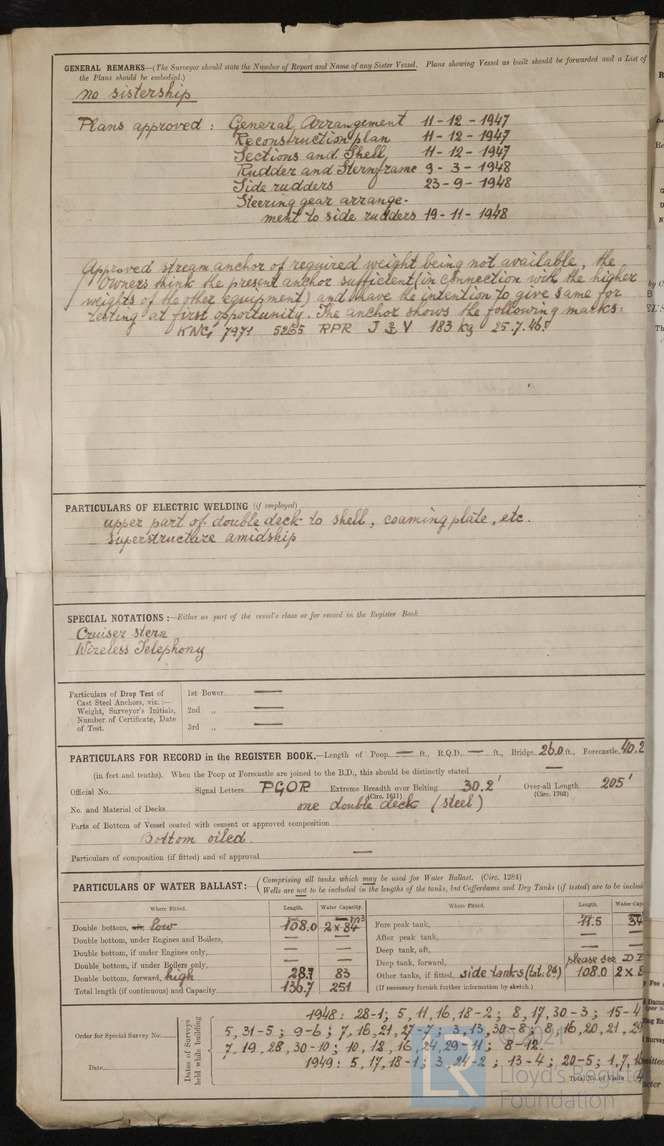 GENERAL REMARKS—(The Surveyor should state the Number of Report and Name of any Sister Vessel. Plans showing Vessel as built should be forwarded and a List of
the Plans should be embodied.)
no sistership
Plans approved : General Arrangement 11-12-1947
Reconstruction plan 11-12-1947
Sections and Shell 11-12-1947
Rudder and Sternframe 9-3-1948
Side rudders 23-9-1948
Steering gear arrange-
ment to side rudders 19-11-1948
Approved stream anchor of required weight being not available, the
Owners think the present anchor sufficient (in connection with the higher
weights of the other equipment) and have the intention to give same for
testing at first opportunity. The anchor shows the following marks:
7971 RPR 183 kg 25.7.46
PARTICULARS OF ELECTRIC WELDING (if employed)
upper part of double deck to shell, coaming plate, etc.
Superstructure amidship
SPECIAL NOTATIONS :—Either as part of the vessel's class or for record in the Register Book
Cruiser stern
Wireless Telephony
Particulars of Drop Test of
Cast Steel Anchors, viz. :—
Weight, Surveyor's Initials,
Number of Certificate, Date
of Test.
1st Bower —
2nd „ —
3rd „ —
PARTICULARS FOR RECORD in the REGISTER BOOK.—Length of Poop — ft., R.Q.D. — ft., Bridge 26.0 ft., Forecastle 40.2
(in feet and tenths). When the Poop or Forecastle are joined to the B.D., this should be distinctly stated —
Official No. Signal Letters PGOR Extreme Breadth over Belting 30.2' Over-all Length 205'
(Circ. 1611) (Circ. 1703)
No. and Material of Decks one double deck (steel)
Parts of Bottom of Vessel coated with cement or approved composition
Bottom oiled.
Particulars of composition (if fitted) and of approval —
PARTICULARS OF WATER BALLAST:—(Comprising all tanks which may be used for Water Ballast. (Circ. 1284)
Wells are not to be included in the lengths of the tanks, but Cofferdams and Dry Tanks (if tested) are to be
Where Fitted. Length. Water Capacity. Where Fitted. Length.
Double bottom, aft, low 108.0 2×84 Fore peak tank, 11.5 34
Double bottom, under Engines and Boilers, — — After peak tank, — —
Double bottom, if under Engines only, — — Deep tank, aft, — —
Double bottom, if under Boilers only, — — Deep tank, forward, please see
Double bottom, forward, high 28.7 83 Other tanks, if fitted, side tanks 108.0 2×8
Total length (if continuous) and Capacity 136.7 251 (If necessary furnish further information by sketch.)
Order for Special Survey No.
Date
Dates of Surveys
held while building
1948: 28-1; 5, 11, 16, 18-2; 8, 17, 30-3; 15-4
5, 31-5; 9-6; 7, 16, 21, 27-7; 3, 13, 30-8; 8, 16, 20, 21, 29
7, 19, 28, 30-10; 10, 12, 16, 24, 29-11; 8-12.
1949: 5, 17, 18-1; 3, 24-2; 13-4; 20-5; 1, 7,
Total No. of Visits
© 2021
LR
Lloyd's Register
Foundation